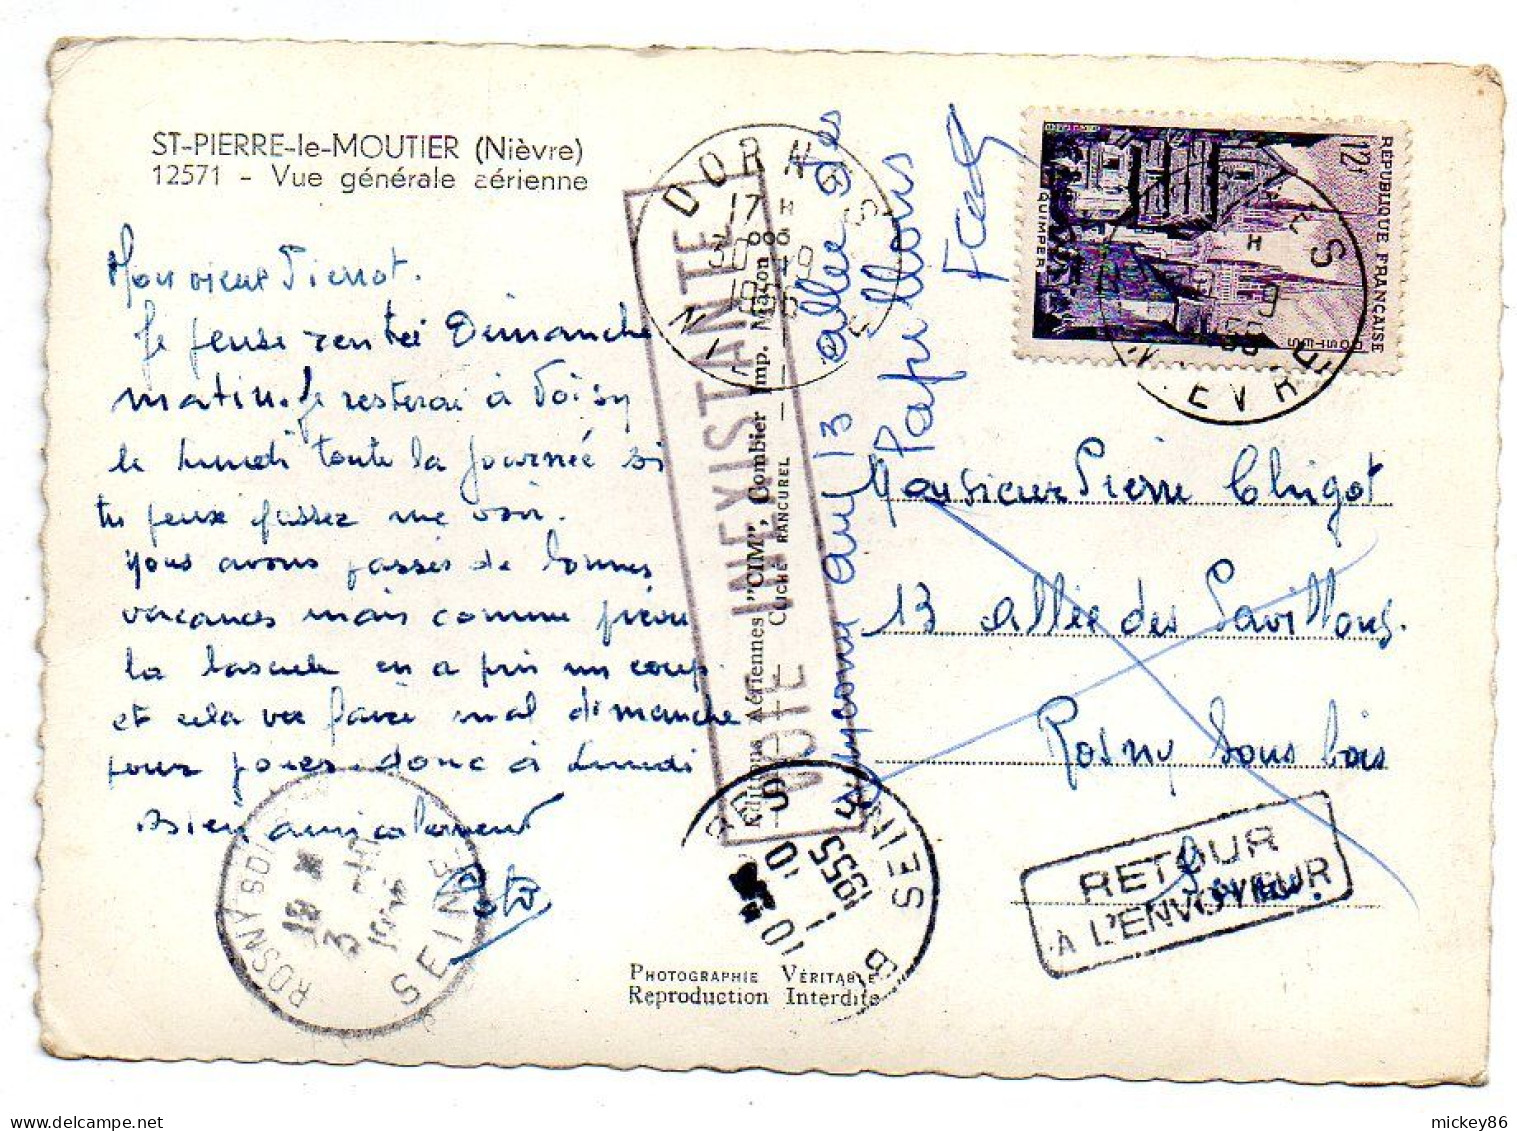 ST-PIERRE-le-MOUTIER (Nièvre)
12571 - Vue générale aérienne
Mon vieux Pierrot.
Je pense rentrer Dimanche
matin. Je resterai à Noisy
le lundi toute la journée si
tu peux passer me voir.
Nous avons passés de bonnes
vacances mais comme prévu
la bascule en a pris un coup
et cela va faire mal dimanche
pour jouer. donc à Lundi
Bien amicalement
PHOTOGRAPHIE VÉRITABLE
Reproduction Interdite
Editions Aériennes "CIM", Combier Imp. Mâcon
CLICHÉ RANCUREL
COTE INEXISTANTE
DORNES
17 H
30 - 9
NIÈVRE
13 allée des
Papillons
RÉPUBLIQUE FRANÇAISE
12f
POSTES
QUIMPER
NIEVRE
Monsieur Pierre Chigot
13 allée des Pavillons.
Rosny sous bois
Seine
RETOUR
A L'ENVOYEUR
ROSNY S/BOIS
18 H
3 - 10
SEINE
10
1 10
1955
SEINE